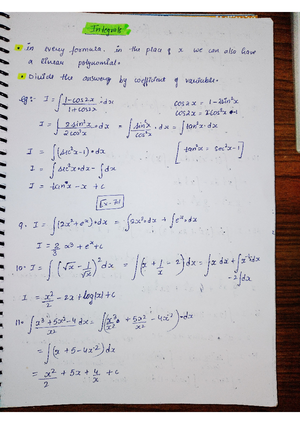 Integrals
• in every formula, in the place of x we can also have
a linear polynomial.
• Divide the answer by coefficient of variable.
Eg:- I = ∫ 1-cos2x / 1+cos2x · dx    cos2x = 1-2sin²x
cos2x = 2cos²x-1
I = ∫ 2sin²x / 2cos²x · dx = ∫ sin²x / cos²x · dx = ∫tan²x·dx
I = ∫(sec²x-1)·dx    [tan²x = sec²x-1]
I = ∫sec²x·dx - ∫dx
I = tanx - x + c
9. I = ∫(2x²+eˣ)·dx = ∫2x²·dx + ∫eˣ·dx
I = 2/3 x³ + eˣ + c
10. I = ∫(√x - 1/√x)² dx = ∫(x + 1/x - 2)dx = ∫x dx + ∫x⁻¹dx
-2∫dx
I = x²/2 - 2x + log|x| + c
11. ∫ x³+5x²-4 / x² dx = ∫(x³/x² + 5x²/x² - 4x⁻²)·dx
= ∫(x + 5 - 4x⁻²)dx
= x²/2 + 5x + 4/x + c